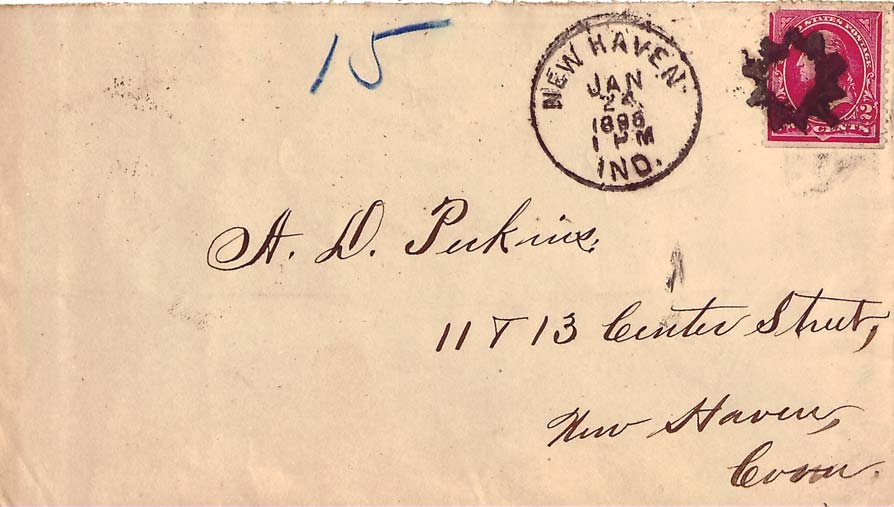 15
NEW HAVEN
JAN
24
1898
1 PM
IND.
D STATES POSTAGE
2
CENTS
A. D. Perkins,
11 & 13 Center Street,
New Haven,
Conn.